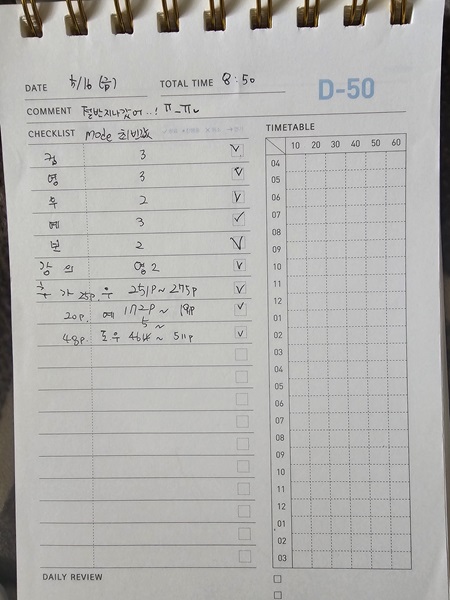 DATE 5/16 (금) TOTAL TIME 8:50
D-50
COMMENT 절반지나갔어..! ㅠ_ㅠ
CHECKLIST mode 최빈값
TIMETABLE
10 20 30 40 50 60
3
영 3
우 2
예 3
본 2
강의 영2
추가 25p. 우 251p~275p
20p. 예 172p~191p
48p. 5~
511p
04
05
06
07
08
09
10
11
12
01
02
03
04
05
06
07
08
09
10
11
12
01
02
03
DAILY REVIEW